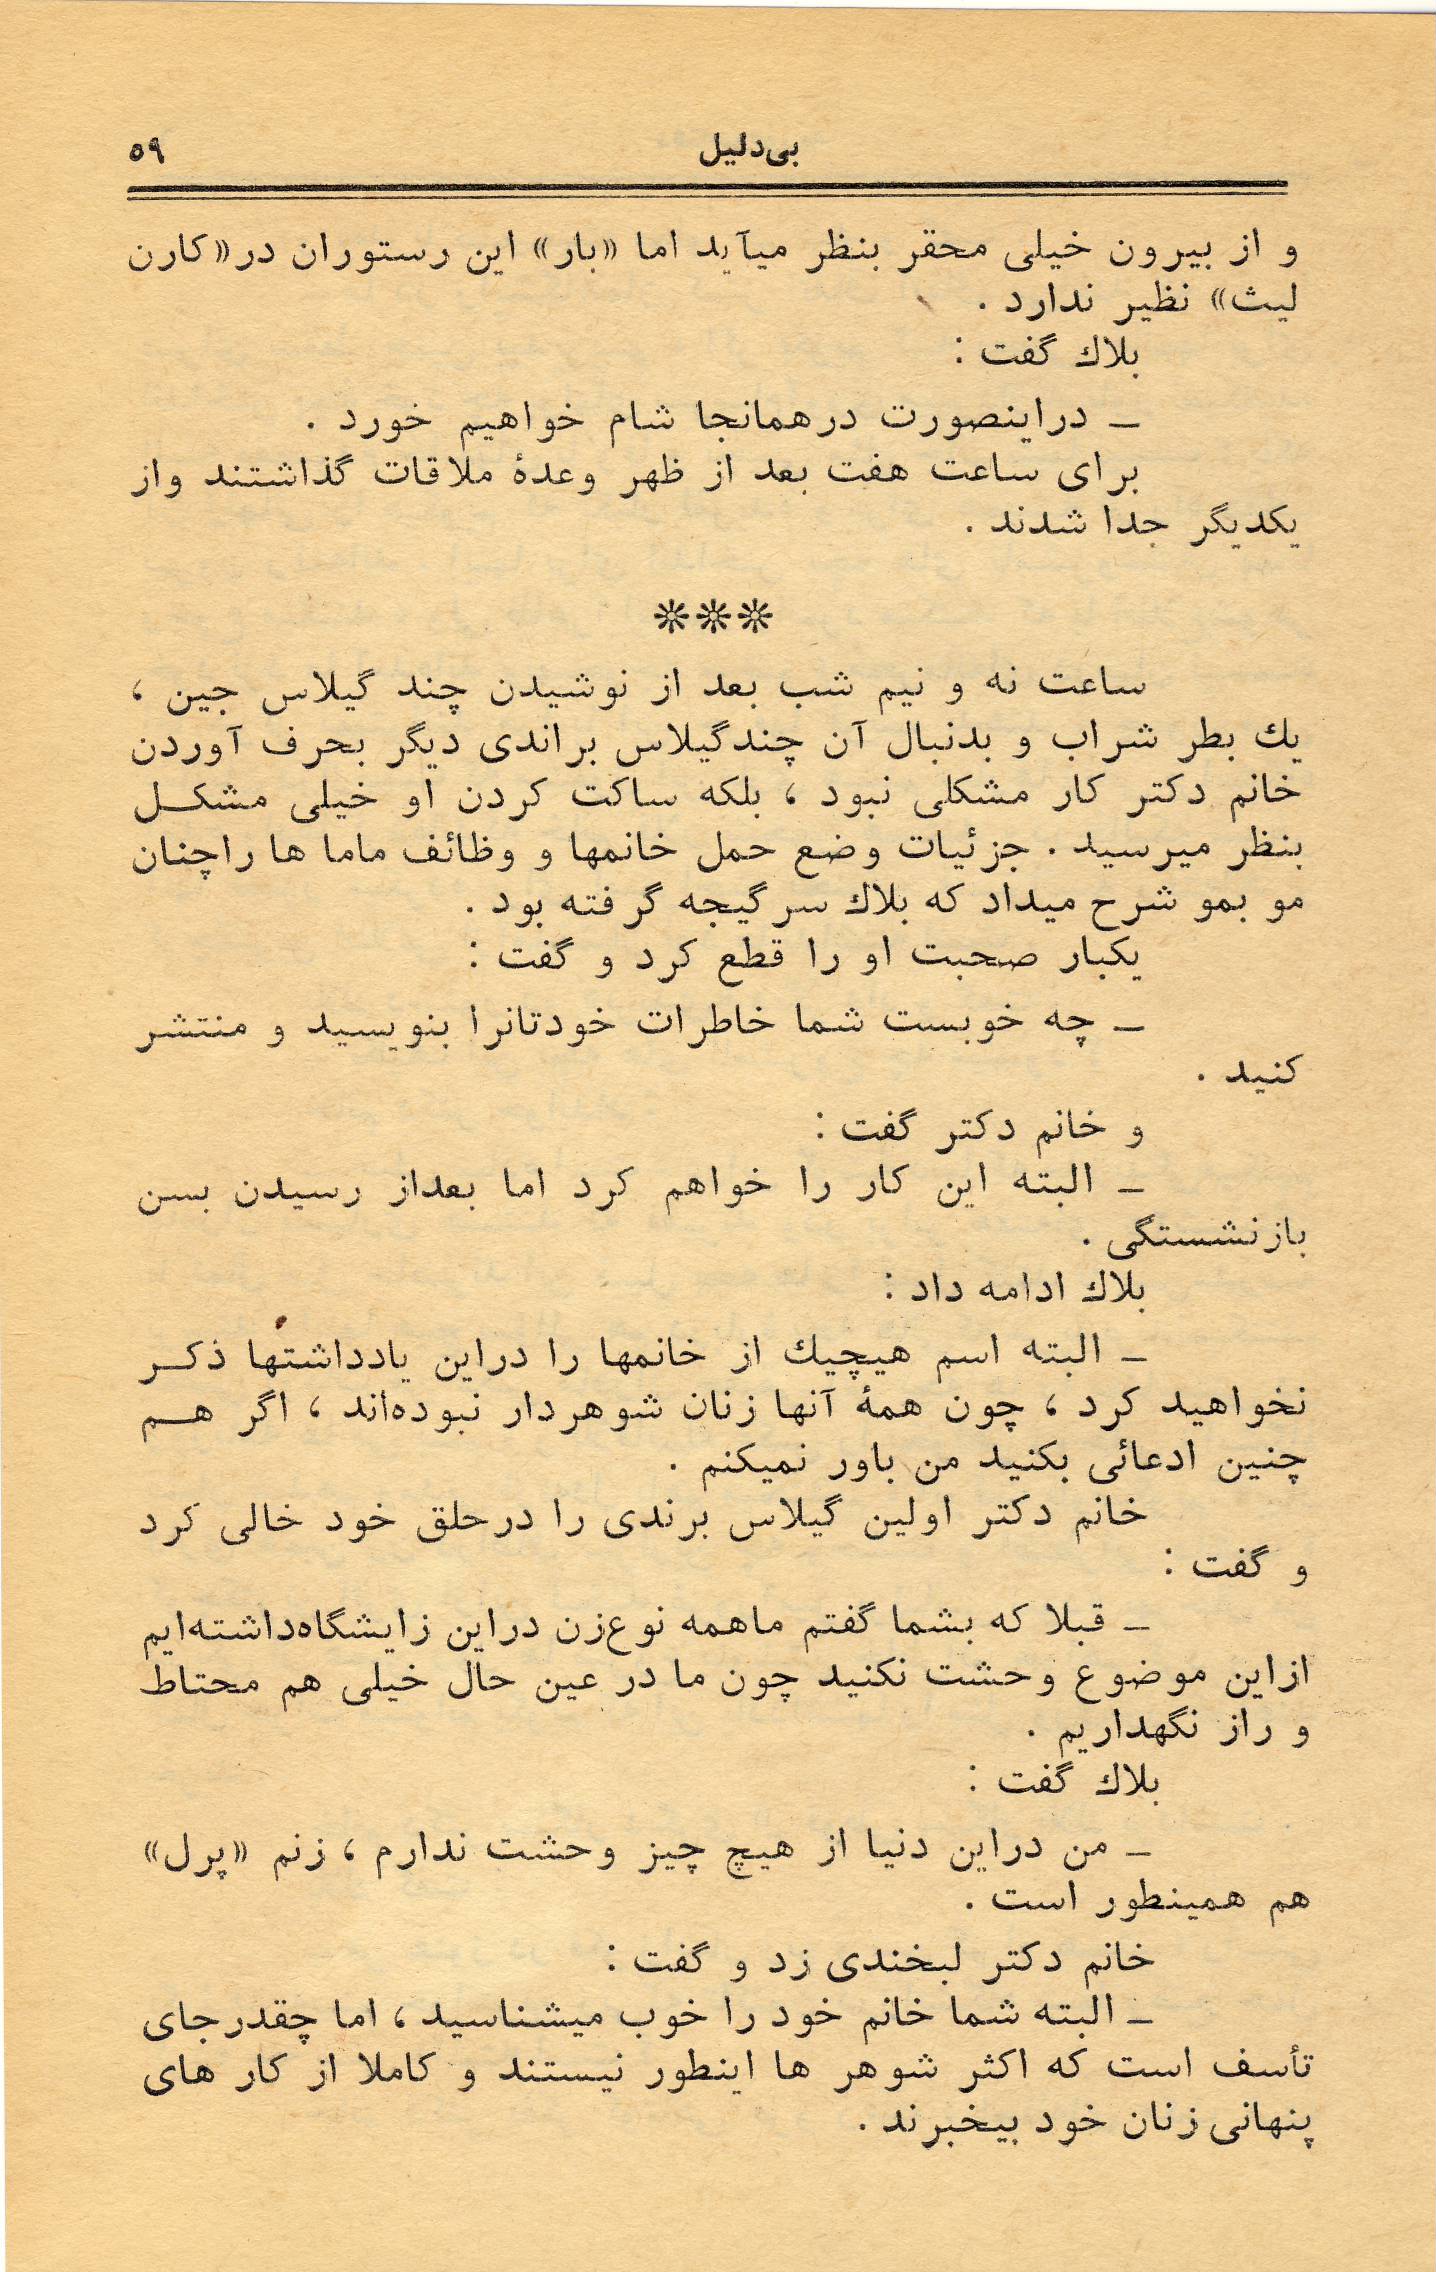 بی‌دلیل ۵۹
و از بیرون خیلی محقر بنظر میآید اما «بار» این رستوران در«کارن
لیث» نظیر ندارد .
بلاك گفت :
ـ دراینصورت درهمانجا شام خواهیم خورد .
برای ساعت هفت بعد از ظهر وعدهٔ ملاقات گذاشتند واز
یکدیگر جدا شدند .
***
ساعت نه و نیم شب بعد از نوشیدن چند گیلاس جین ،
یك بطر شراب و بدنبال آن چندگیلاس براندی دیگر بحرف آوردن
خانم دکتر کار مشکلی نبود ، بلکه ساکت کردن او خیلی مشکـل
بنظر میرسید . جزئیات وضع حمل خانمها و وظائف ماما ها راچنان
مو بمو شرح میداد که بلاك سرگیجه گرفته بود .
یکبار صحبت او را قطع کرد و گفت :
ـ چه خوبست شما خاطرات خودتانرا بنویسید و منتشر
کنید .
و خانم دکتر گفت :
ـ البته این کار را خواهم کرد اما بعداز رسیدن بسن
بازنشستگی .
بلاك ادامه داد :
ـ البته اسم هیچیك از خانمها را دراین یادداشتها ذکـر
نخواهید کرد ، چون همهٔ آنها زنان شوهردار نبوده‌اند ، اگر هـم
چنین ادعائی بکنید من باور نمیکنم .
خانم دکتر اولین گیلاس برندی را درحلق خود خالی کرد
و گفت :
ـ قبلا که بشما گفتم ماهمه نوع‌زن دراین زایشگاه‌داشته‌ایم
ازاین موضوع وحشت نکنید چون ما در عین حال خیلی هم محتاط
و راز نگهداریم .
بلاك گفت :
ـ من دراین دنیا از هیچ چیز وحشت ندارم ، زنم «پرل»
هم همینطور است .
خانم دکتر لبخندی زد و گفت :
ـ البته شما خانم خود را خوب میشناسید ، اما چقدرجای
تأسف است که اکثر شوهر ها اینطور نیستند و کاملا از کار های
پنهانی زنان خود بیخبرند .